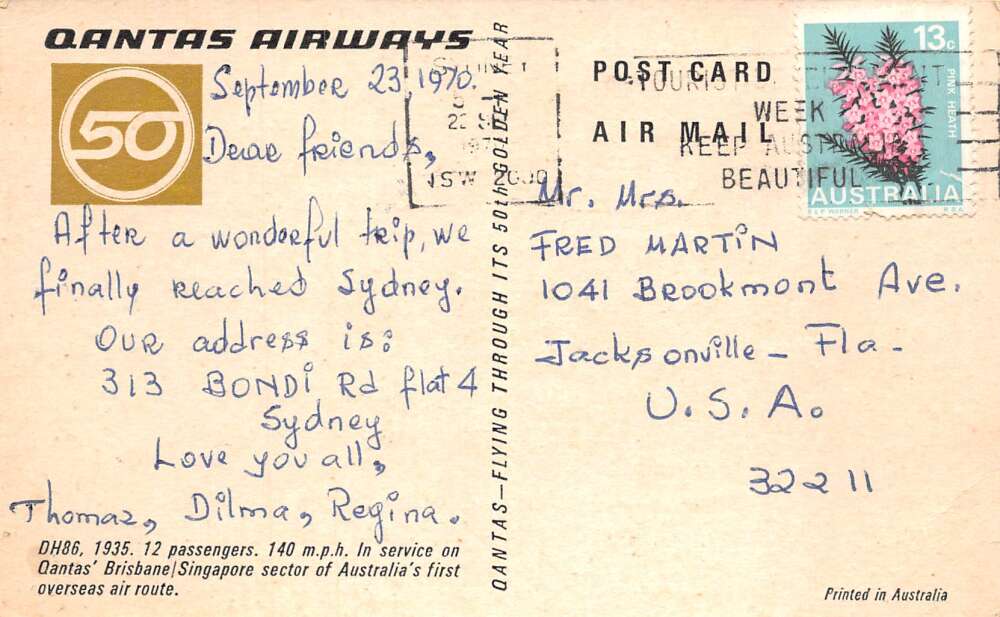 QANTAS AIRWAYS
50
September 23, 1970.
Dear friends,
After a wonderful trip, we
finally reached Sydney.
Our address is:
313 BONDi Rd flat 4
Sydney
Love you all,
Thomaz, Dilma, Regina.
DH86, 1935. 12 passengers. 140 m.p.h. In service on
Qantas' Brisbane/Singapore sector of Australia's first
overseas air route.
QANTAS—FLYING THROUGH ITS 50th GOLDEN YEAR
POST CARD
AIR MAIL
NSW 2000
TOURIST
WEEK
KEEP AUSTRALIA
BEAUTIFUL
13c
PINK HEATH
AUSTRALIA
Mr. Mrs.
FRED MARTiN
1041 Brookmont Ave.
Jacksonville - Fla -
U.S.A.
32211
Printed in Australia